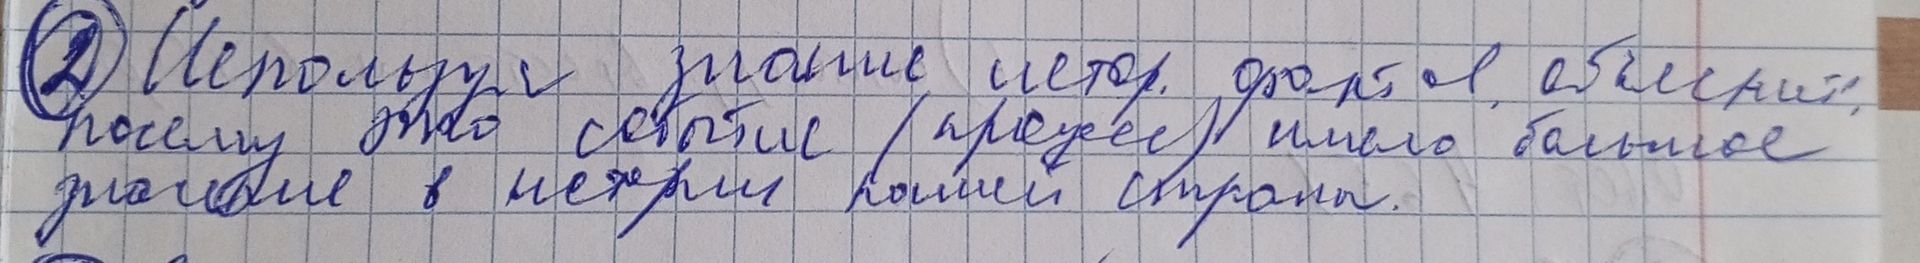 2 Используя знание истор. фактов, объяснить,
почему это событие (процесс) имело большое
значение в истории нашей страны.